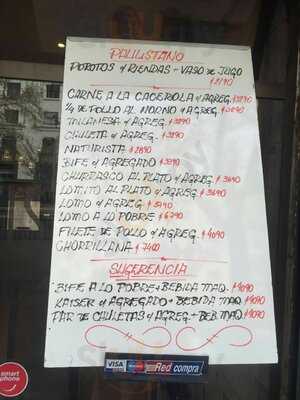 PAULISTANO
POROTOS c/ RIENDAS - VASO DE JUGO
$2190
CARNE A LA CACEROLA c/ AGREG. $3290
1/4 DE POLLO AL HORNO c/ AGREG.
MILANESA c/ AGREG. $3290
CHULETA c/ AGREG. $3290
NATURISTA $2890
BIFE c/ AGREGADO $3890
CHURRASCO AL PLATO c/ AGREG. $3690
LOMITO AL PLATO c/ AGREG. $3690
LOMO c/ AGREG. $3490
LOMO A LO POBRE $6790
FILETE DE POLLO c/ AGREG. $4090
CHORRILLANA $7400
SUGERENCIA
BIFE A LO POBRE + BEBIDA MAQ. $4090
KAISER c/ AGREGADO + BEBIDA MAQ $4090
PAR DE CHULETAS c/ AGREG + BEB MAQ $4090
smart phone
VISA Red compra